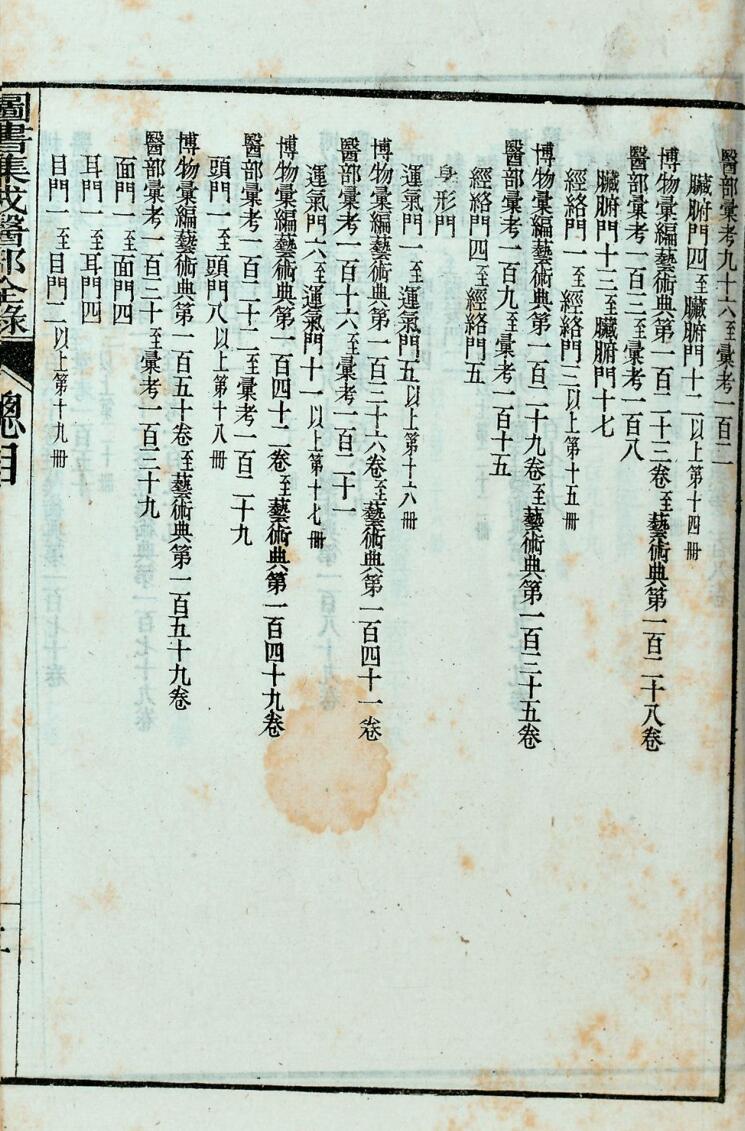 醫部彙考九十六至彙考一百二
臟腑門四至臟腑門十二以上第十四冊
博物彙編藝術典第一百二十三卷至藝術典第一百二十八卷
醫部彙考一百三至彙考一百八
臟腑門十三至臟腑門十七
經絡門一至經絡門三以上第十五冊
博物彙編藝術典第一百二十九卷至藝術典第一百三十五卷
醫部彙考一百九至彙考一百十五
經絡門四至經絡門五
身形門
運氣門一至運氣門五以上第十六冊
博物彙編藝術典第一百三十六卷至藝術典第一百四十一卷
醫部彙考一百十六至彙考一百二十一
運氣門六至運氣門十一以上第十七冊
博物彙編藝術典第一百四十二卷至藝術典第一百四十九卷
醫部彙考一百二十二至彙考一百二十九
頭門一至頭門八以上第十八冊
博物彙編藝術典第一百五十卷至藝術典第一百五十九卷
醫部彙考一百三十至彙考一百三十九
面門一至面門四
耳門一至耳門四
目門一至目門二以上第十九冊
圖書集成醫部全錄 總目